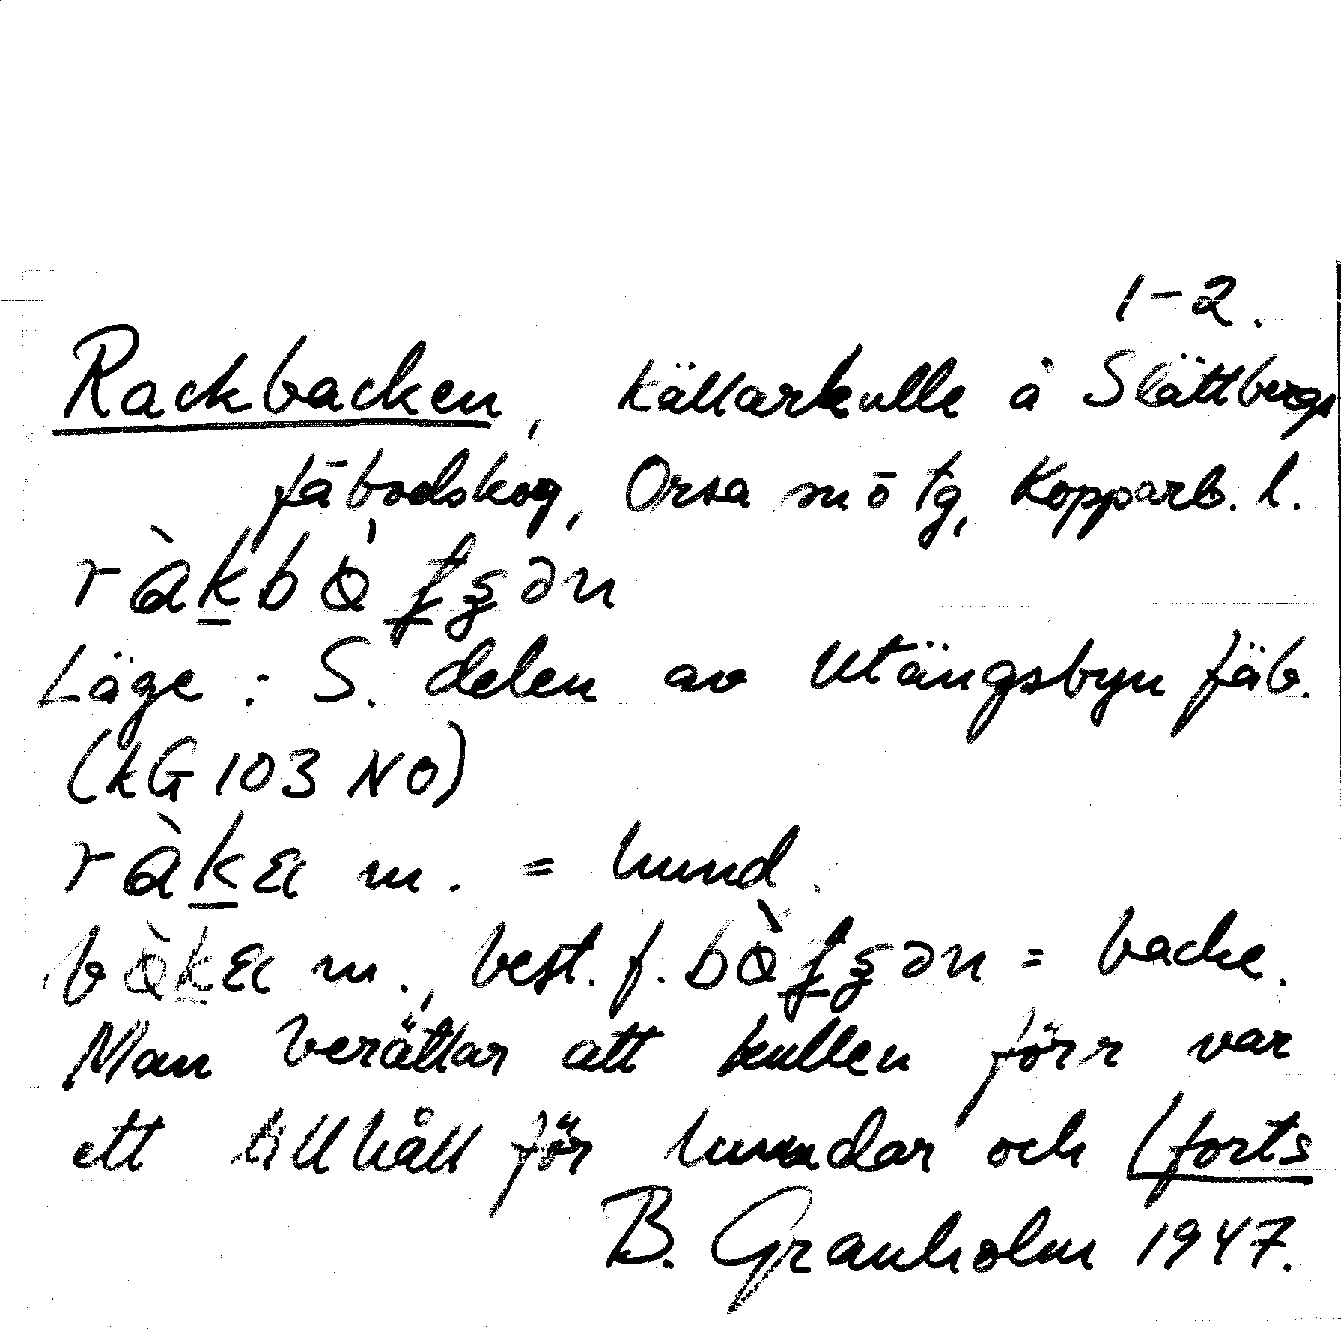 1-2.
Rackbacken, källarkulle å Slättbergs
fäbodskog, Orsa sn ö tg, Kopparb. l.
ràkbɑ̀ʄʂən
Läge: S. delen av Utängsbyn fäb.
(kG 103 NO)
ràka m. = hund.
bɑ̀ka m., best. f. bɑ̀ʄʂən = backe.
Man berättar att kullen förr var
ett tillhåll för hundar och (forts
B. Granholm 1947.